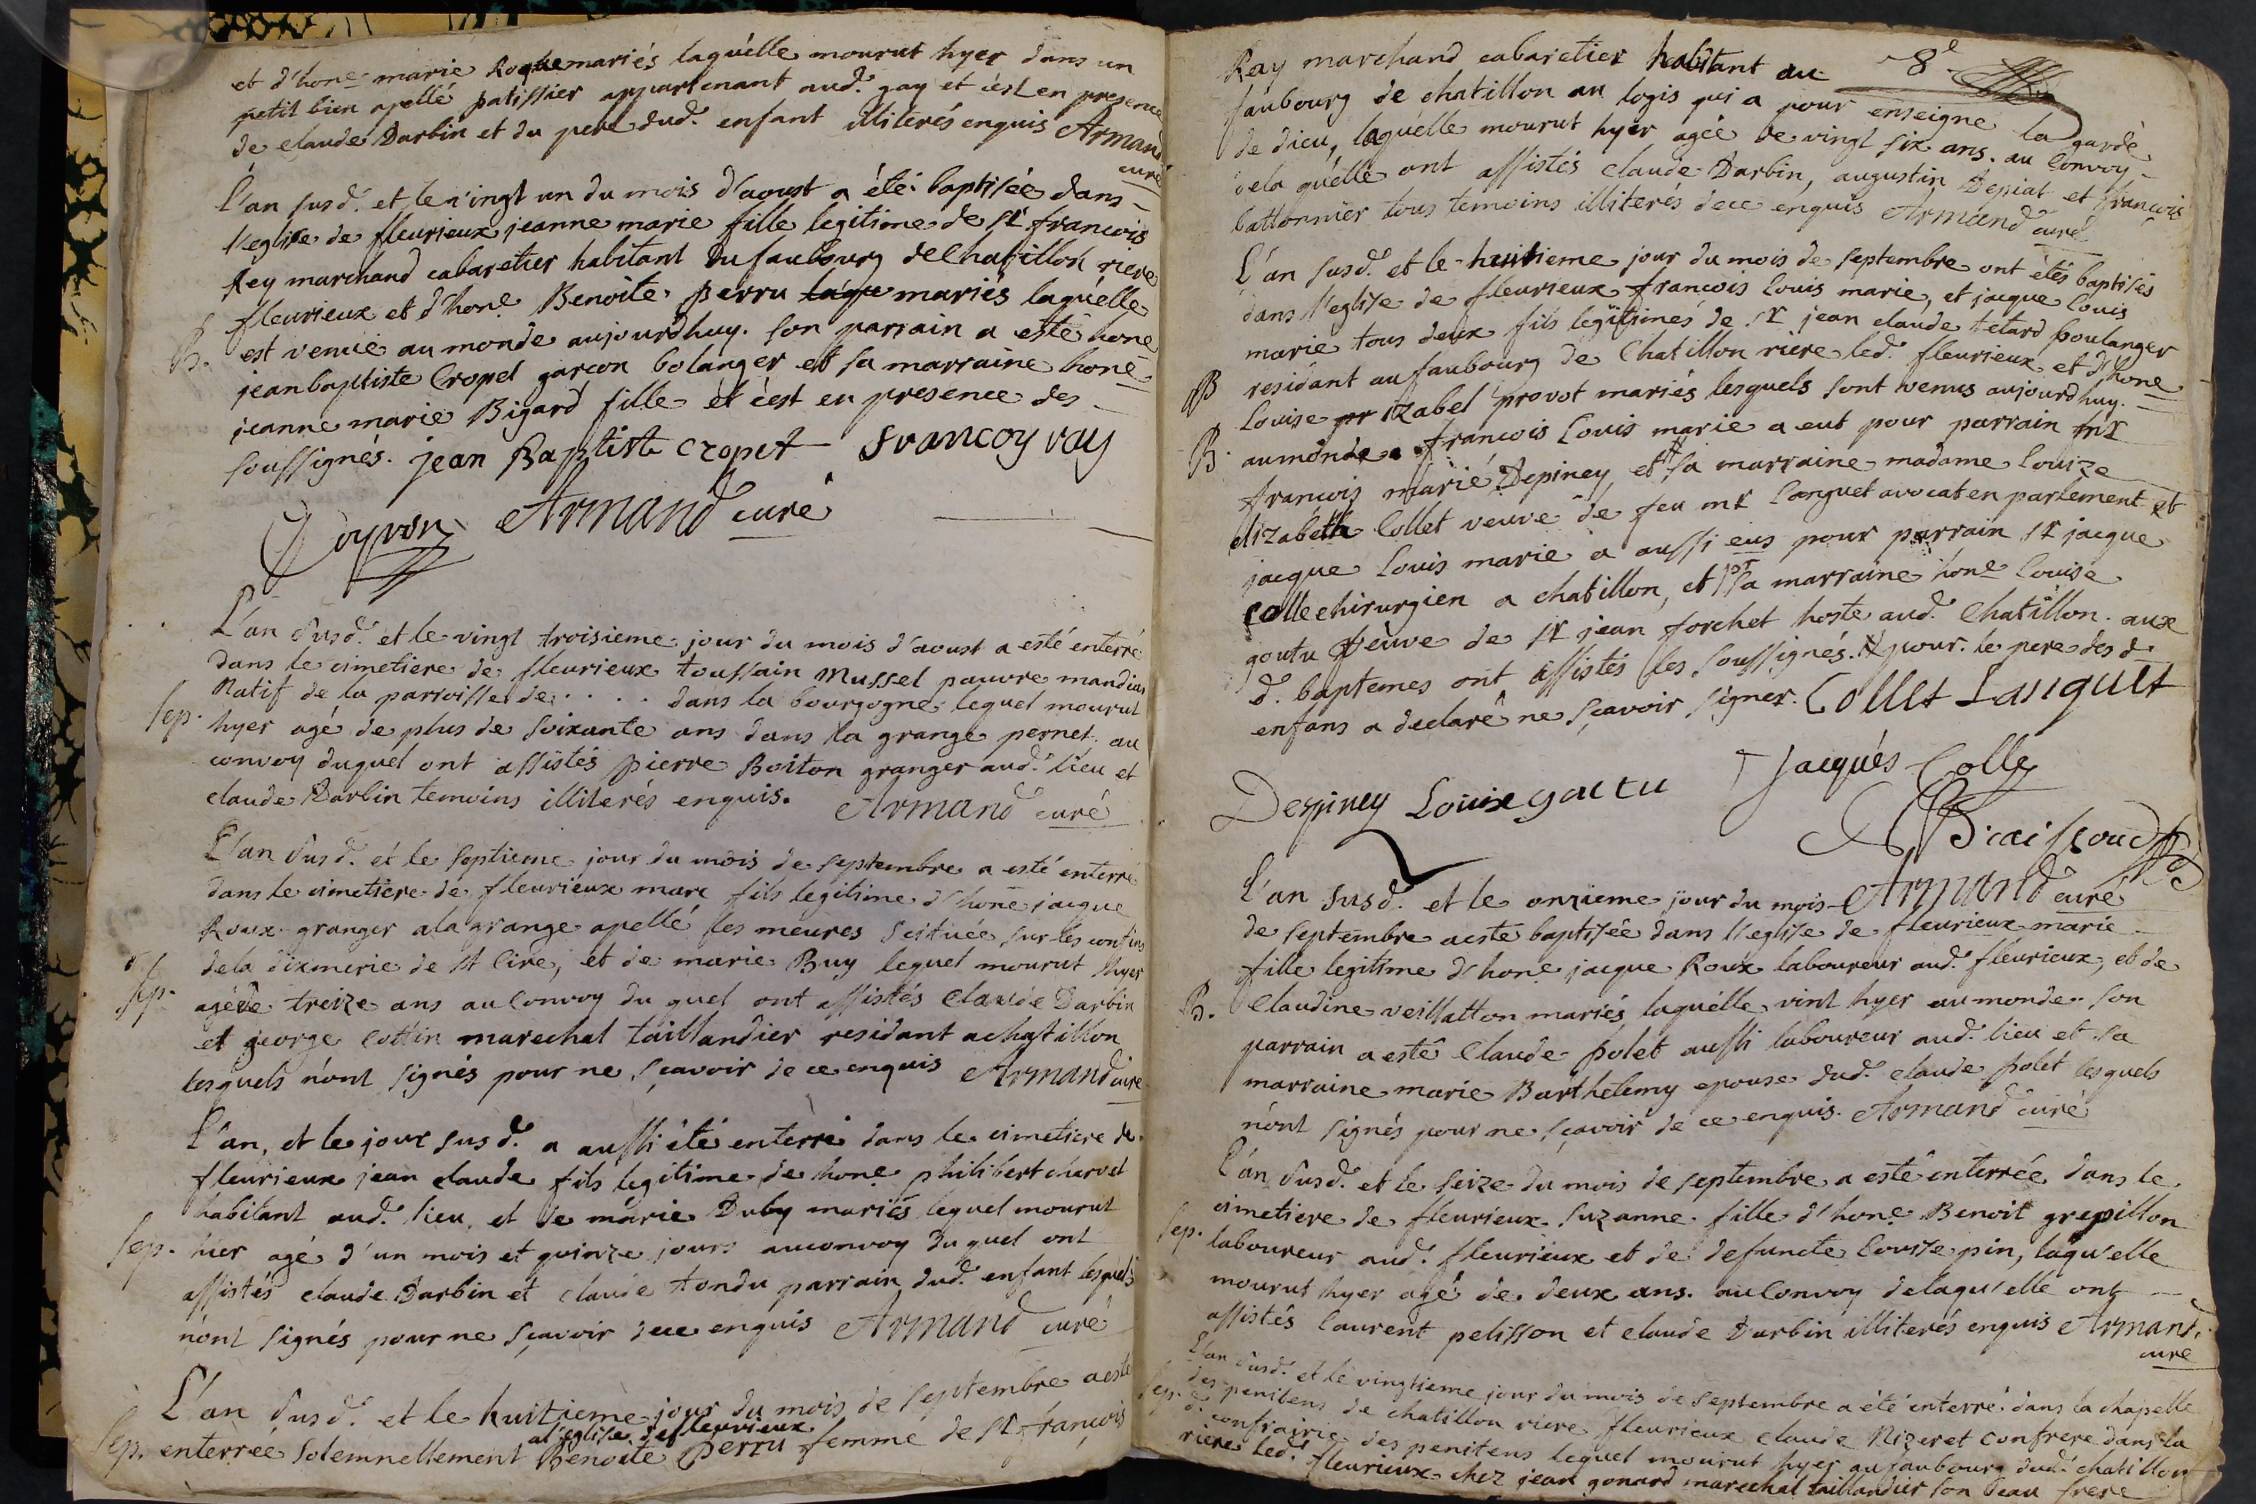 et d'hone marie Roque mariés laquelle mourut hyer dans un
petit bien apellé patissier appartenant aud. gay et c'est en presence
de claude Darbin et du pere dud. enfant illiterés enquis Armand
curé
L'an susd. et le vingt un du mois d'aoust a été baptisée dans
l'eglise de fleurieux jeanne marie fille legitime de sr francois
Rey marchand cabaretier habitant du faubourg de Chatillon riere
fleurieux et d'hone Benoite perru laqu mariés laquelle
B. est venuë au monde aujourdhuy. son parrain a esté hone
jean baptiste Cropet garcon bolanger et sa marraine hone
jeanne marie Bigard fille et c'est en presence des
soussignés. jean Baptiste cropet francoy ray
Armand curé
L'an susd. et le vingt troisieme jour du mois d'aoust a esté enterré
dans le cimetiere de fleurieux toussain Mussel pauvre mandian
Natif de la parroisse de . . . . dans la bourgogne lequel mourut
Sep. hyer agé de plus de soixante ans dans la grange pernet. au
convoy duquel ont assistés pierre Boiton granger aud. lieu et
claude Darbin temoins illiterés enquis. Armand curé
L'an susd. et le septieme jour du mois de septembre a esté enterré
dans le cimetiere de fleurieux marc fils legitime d'hone jacque
Roux granger a la grange apellé les meures scituée sur les confins
dela dixmerie de st Cire, et de marie Buy lequel mourut hyer
Sep. agé de treize ans au Convoy du quel ont assistés Claude Darbin
et george Cottin marechal taillandier residant a chastillon
lesquels n'ont signés pour ne sçavoir de ce enquis Armand curé
L'an, et le jour susd. a aussi été enterré dans le cimetiere de
fleurieux jean claude fils legitime de hone philibert charvet
habitant aud. lieu, et de marie Duby mariés lequel mourut
Sep. hier agé d'un mois et quinze jours au convoy du quel ont
assistés claude Darbin et claude tondu parrain dud. enfant lesquels
n'ont signés pour ne sçavoir dece enquis Armand curé
L'an susd. et le huitieme jour du mois de septembre a esté
a l'eglise de fleurieux
Sep. enterrée solemnellement Benoite perru femme de sr francois
Ray marchand cabaretier habitant au 8e
faubourg de chatillon au logis qui a pour enseigne la garde
de dieu, laquelle mourut hyer agée de vingt six ans. au Convoy
dela quelle ont assistés claude Darbin, augustin Depiat et francois
battonnier tous temoins illiterés dece enquis Armand curé
L'an susd. et le huitieme jour du mois de septembre ont étés baptisés
dans l'eglise de fleurieux francois louis marie, et jacque louis
marie tous deux fils legitimes de sr jean claude tetard boulanger
B residant au faubourg de Chatillon riere led. fleurieux et d'hone
Louise pr izabel provot mariés lesquels sont venus aujourdhuy
B. au monde francois louis marie a eut pour parrain mr
françois marie Depiney, et sa marraine madame louize
elizabeth Collet veuve de feu mr Languet avocat en parlement et
jacque louis marie a aussi eus pour parrain sr jacque
Colle chirurgien a chatillon, et pr sa marraine hone louise
goutu veuve de sr jean forchet hoste aud. Chatillon. aux
d. baptemes ont assistés les soussignés. pour. le pere des d.
enfans a declaré ne sçavoir signer. Collet Languet
Depiney Louise goutu Jacques Colle
L'an susd. et le onzieme jour du mois Armand curé
de septembre a esté baptisée dans l'eglise de fleurieux marie
fille legitime d'hone jacque Roux laboureur aud. fleurieux, et de
B. Claudine veillatton mariés laquelle vint hyer au monde. son
parrain a esté Claude polet aussi laboureur aud. lieu et sa
marraine marie Barthelemy epouse dud. claude polet lesquels
n'ont signés pour ne sçavoir de ce enquis. Armand curé
L'an susd. et le seize du mois de septembre a esté enterrée dans le
cimetiere de fleurieux suzanne fille d'hone Benoit grepillon
Sep. laboureur aud. fleurieux et de defuncte louise pin, laquelle
mourut hyer agé de deux ans. au Convoy delaquelle ont
assistés laurent pelisson et claude Darbin illiterés enquis Armand
curé
L'an susd. et le vingtieme jour du mois de septembre a été enterré dans la chapelle
Sep. des penitens de chatillon riere fleurieux claude Nizeret confrere dans la
d. confrairie des penitens lequel mourut hyer au faubourg dud. chatillon
riere led. fleurieux chez jean gonard marechal taillandier son beau frere